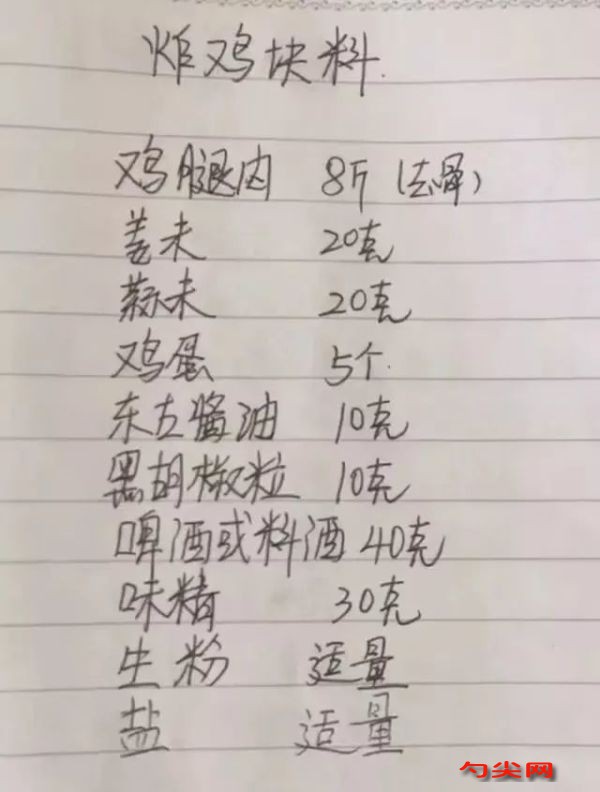 炸鸡块料.
鸡腿肉 8斤(去骨)
姜未 20克
蒜未 20克
鸡蛋 5个.
东古酱油 10克
黑胡椒粒 10克
啤酒或料酒 40克
味精 30克
生粉 适量
盐 适量
勺尖网